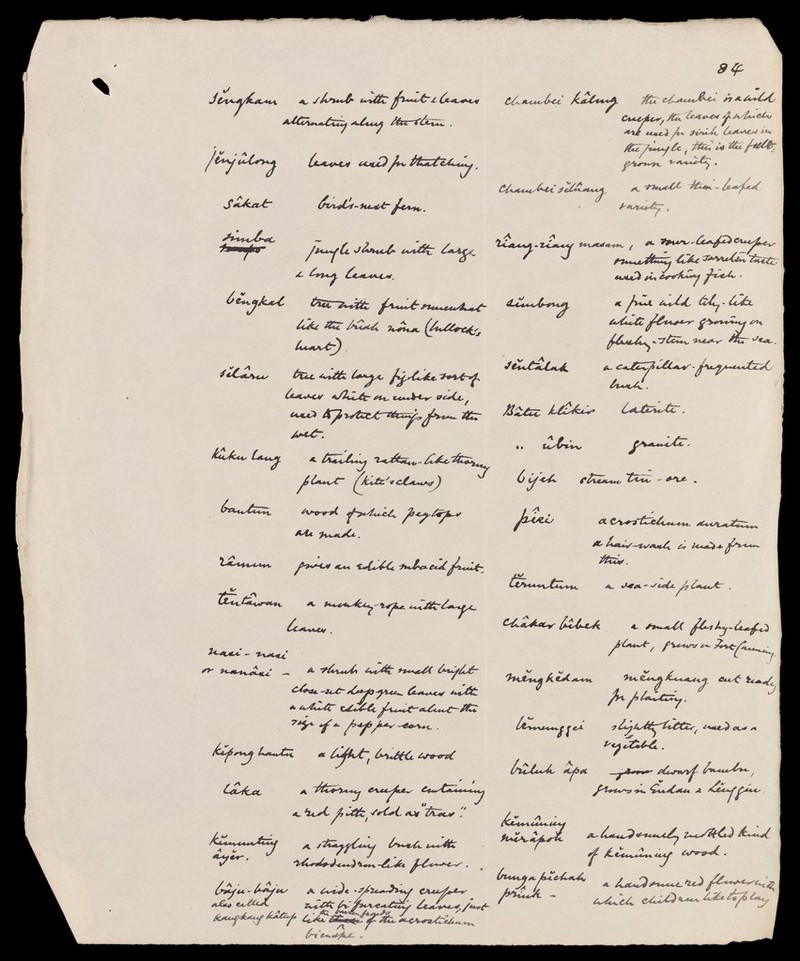 84
sĕngkam a shrub with fruit & leaves
alternating along the stem.
jĕnjûlong leaves used for thatching.
sâkat bird's-nest fern.
simba jungle shrub with large
& long leaves.
bĕngkal tree with fruit somewhat
like the bûah nôna (bullock's
heart)
sĕlâru tree with large fig-like sort of
leaves white on under side,
used to protect things from the
wet.
kûku lang a trailing rattan-like thorny
plant (kite's claws)
bantun wood of which pegtops
are made.
râmun gives an edible subacid fruit.
tĕntâwan a monkey-rope with large
leaves.
nasi-nasi
or nanâsi – a shrub with small bright
close-set deep green leaves with
a white edible fruit about the
size of a pepper-corn.
kĕpong hantu a light, brittle wood
lâka a thorny creeper containing
a red pith, sold as "tras".
kĕmunting a straggling bush with
âyĕr. rhododendron-like flower.
bâju-bâju a wide-spreading creeper
alas called with bifurcating leaves, just
kangkang kâtup like the barren fronds of the acrostichum
biforme.
chambei kâlung the chambei is a wild
creeper, the leaves of which
are used for sirih leaves in
the jungle, this is the full-
grown variety.
chambei sĕlûang a small thin-leafed
variety.
rîang-rîang masam, a sour-leafed creeper
something like sorrel in taste
used in cooking fish.
sĭmbong a fine wild lily-like
white flower growing on
fleshy-stem near the sea.
sĕntâlak a caterpillar-frequented
bush.
Bâtu klîkir laterite.
,, ûbin granite.
bîjeh stream tin-ore.
pîei acrostichum auratum
a hair-wash is made from
this.
tĕruntum a sea-side plant.
châkar bêbek a small fleshy-leafed
plant, grows on Fort Canning
mĕngkĕdam mĕngkuang cut ready
for plaiting.
lĕmunggei slightly bitter, used as a
vegetable.
bûluh âpa dwarf bambu,
grows in Endau & Lĕnggiu
kĕmûning
mĕrâpoh a handsomely mottled kind
of kĕmûning wood.
bunga pĕchah a handsome red flower with
prîuk – which children like to play